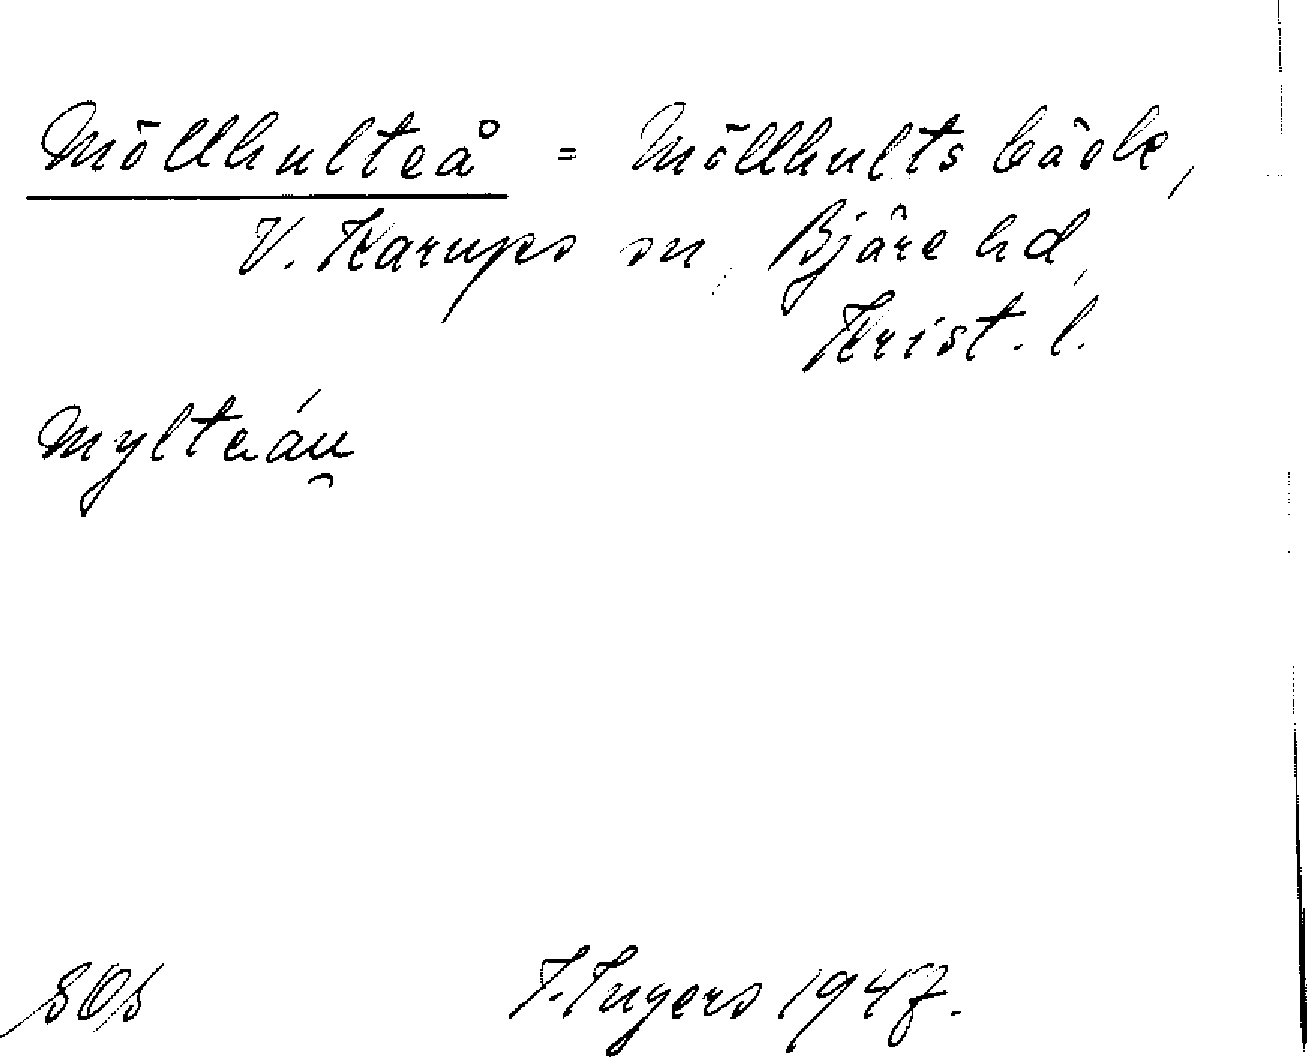 Möllhulteå = Möllhults bäck,
V. Karups sn, Bjäre hd,
Krist. l.
mylteáu̯
SOS
I. Ingers 1947.